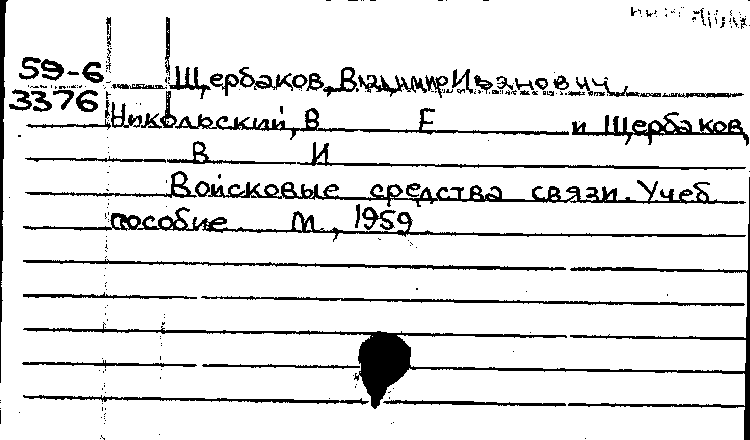 59-6
3376
Щербаков, Владимир Иванович.
Никольский, В Е и Щербаков,
В И
Войсковые средства связи. Учеб
пособие М, 1959